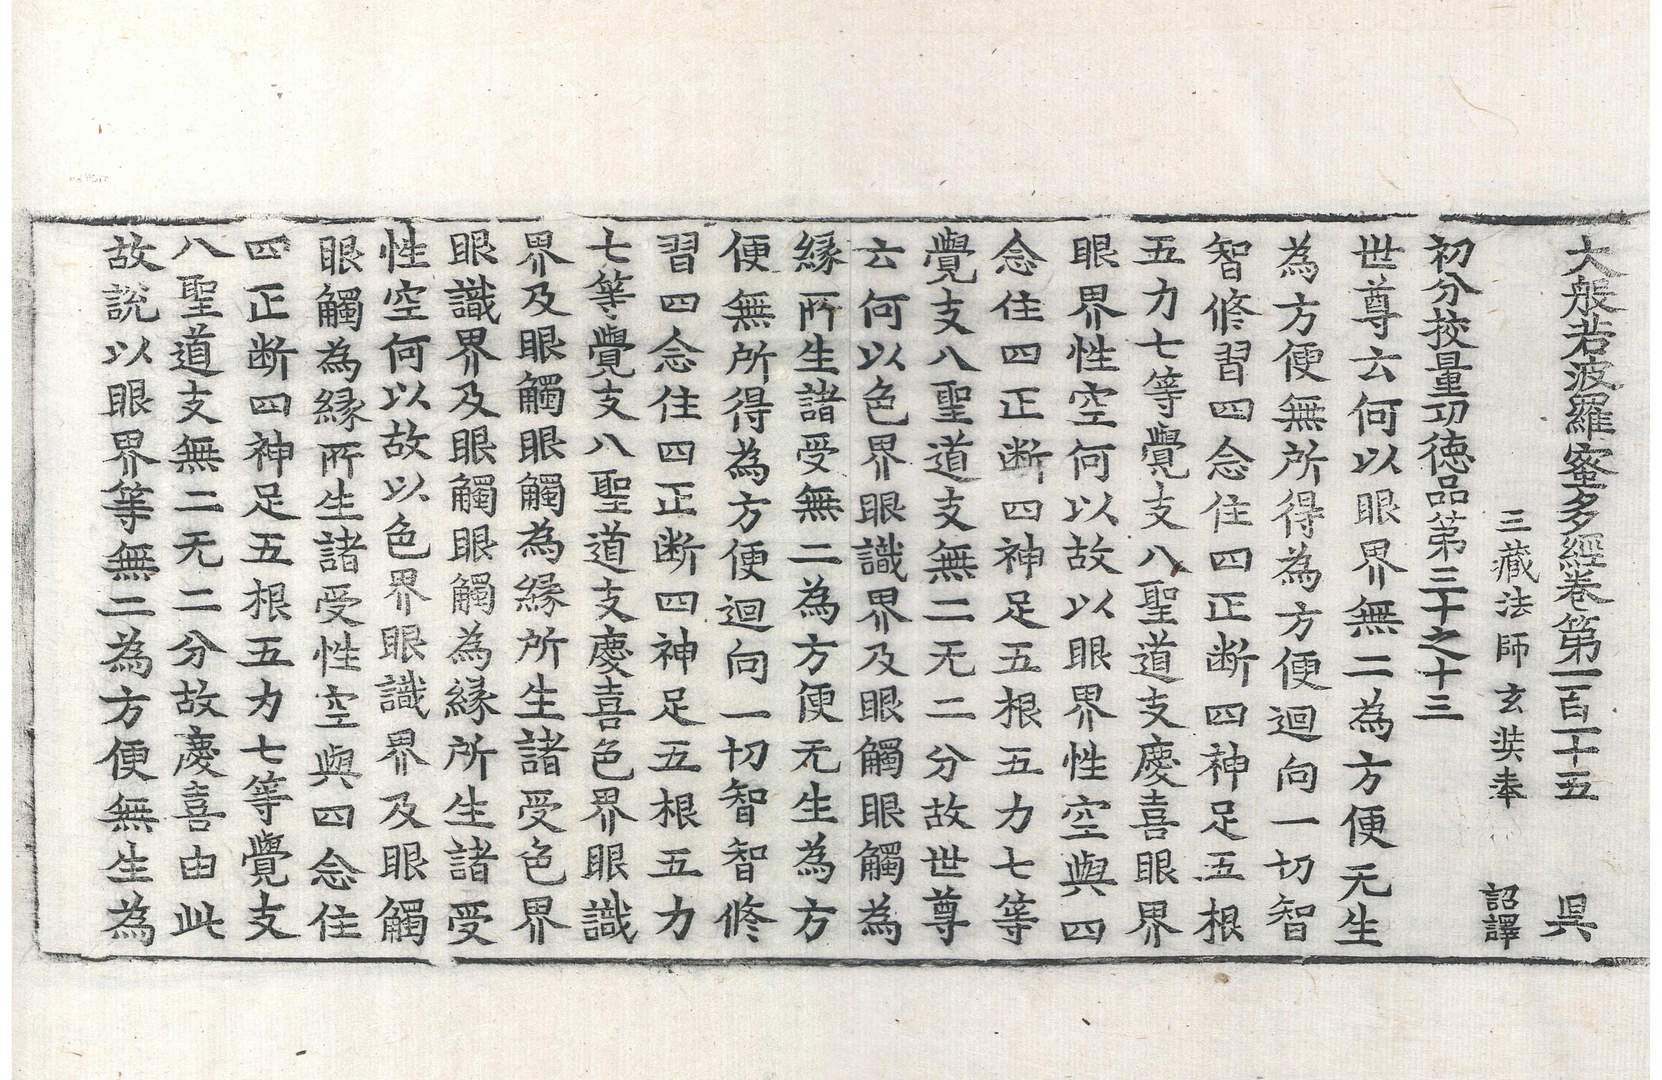 大般若波羅蜜多經卷第一百一十五 吳
三藏法師玄奘奉 詔譯
初分挍量功德品第三十之十三
世尊云何以眼界無二為方便无生
為方便無所得為方便迴向一切智
智修習四念住四正断四神足五根
五力七等覺支八聖道支慶喜眼界
眼界性空何以故以眼界性空與四
念住四正断四神足五根五力七等
覺支八聖道支無二无二分故世尊
云何以色界眼識界及眼觸眼觸為
緣所生諸受無二為方便无生為方
便無所得為方便迴向一切智智修
習四念住四正断四神足五根五力
七等覺支八聖道支慶喜色界眼識
界及眼觸眼觸為緣所生諸受色界
眼識界及眼觸眼觸為緣所生諸受
性空何以故以色界眼識界及眼觸
眼觸為緣所生諸受性空與四念住
四正断四神足五根五力七等覺支
八聖道支無二无二分故慶喜由此
故說以眼界等無二為方便無生為